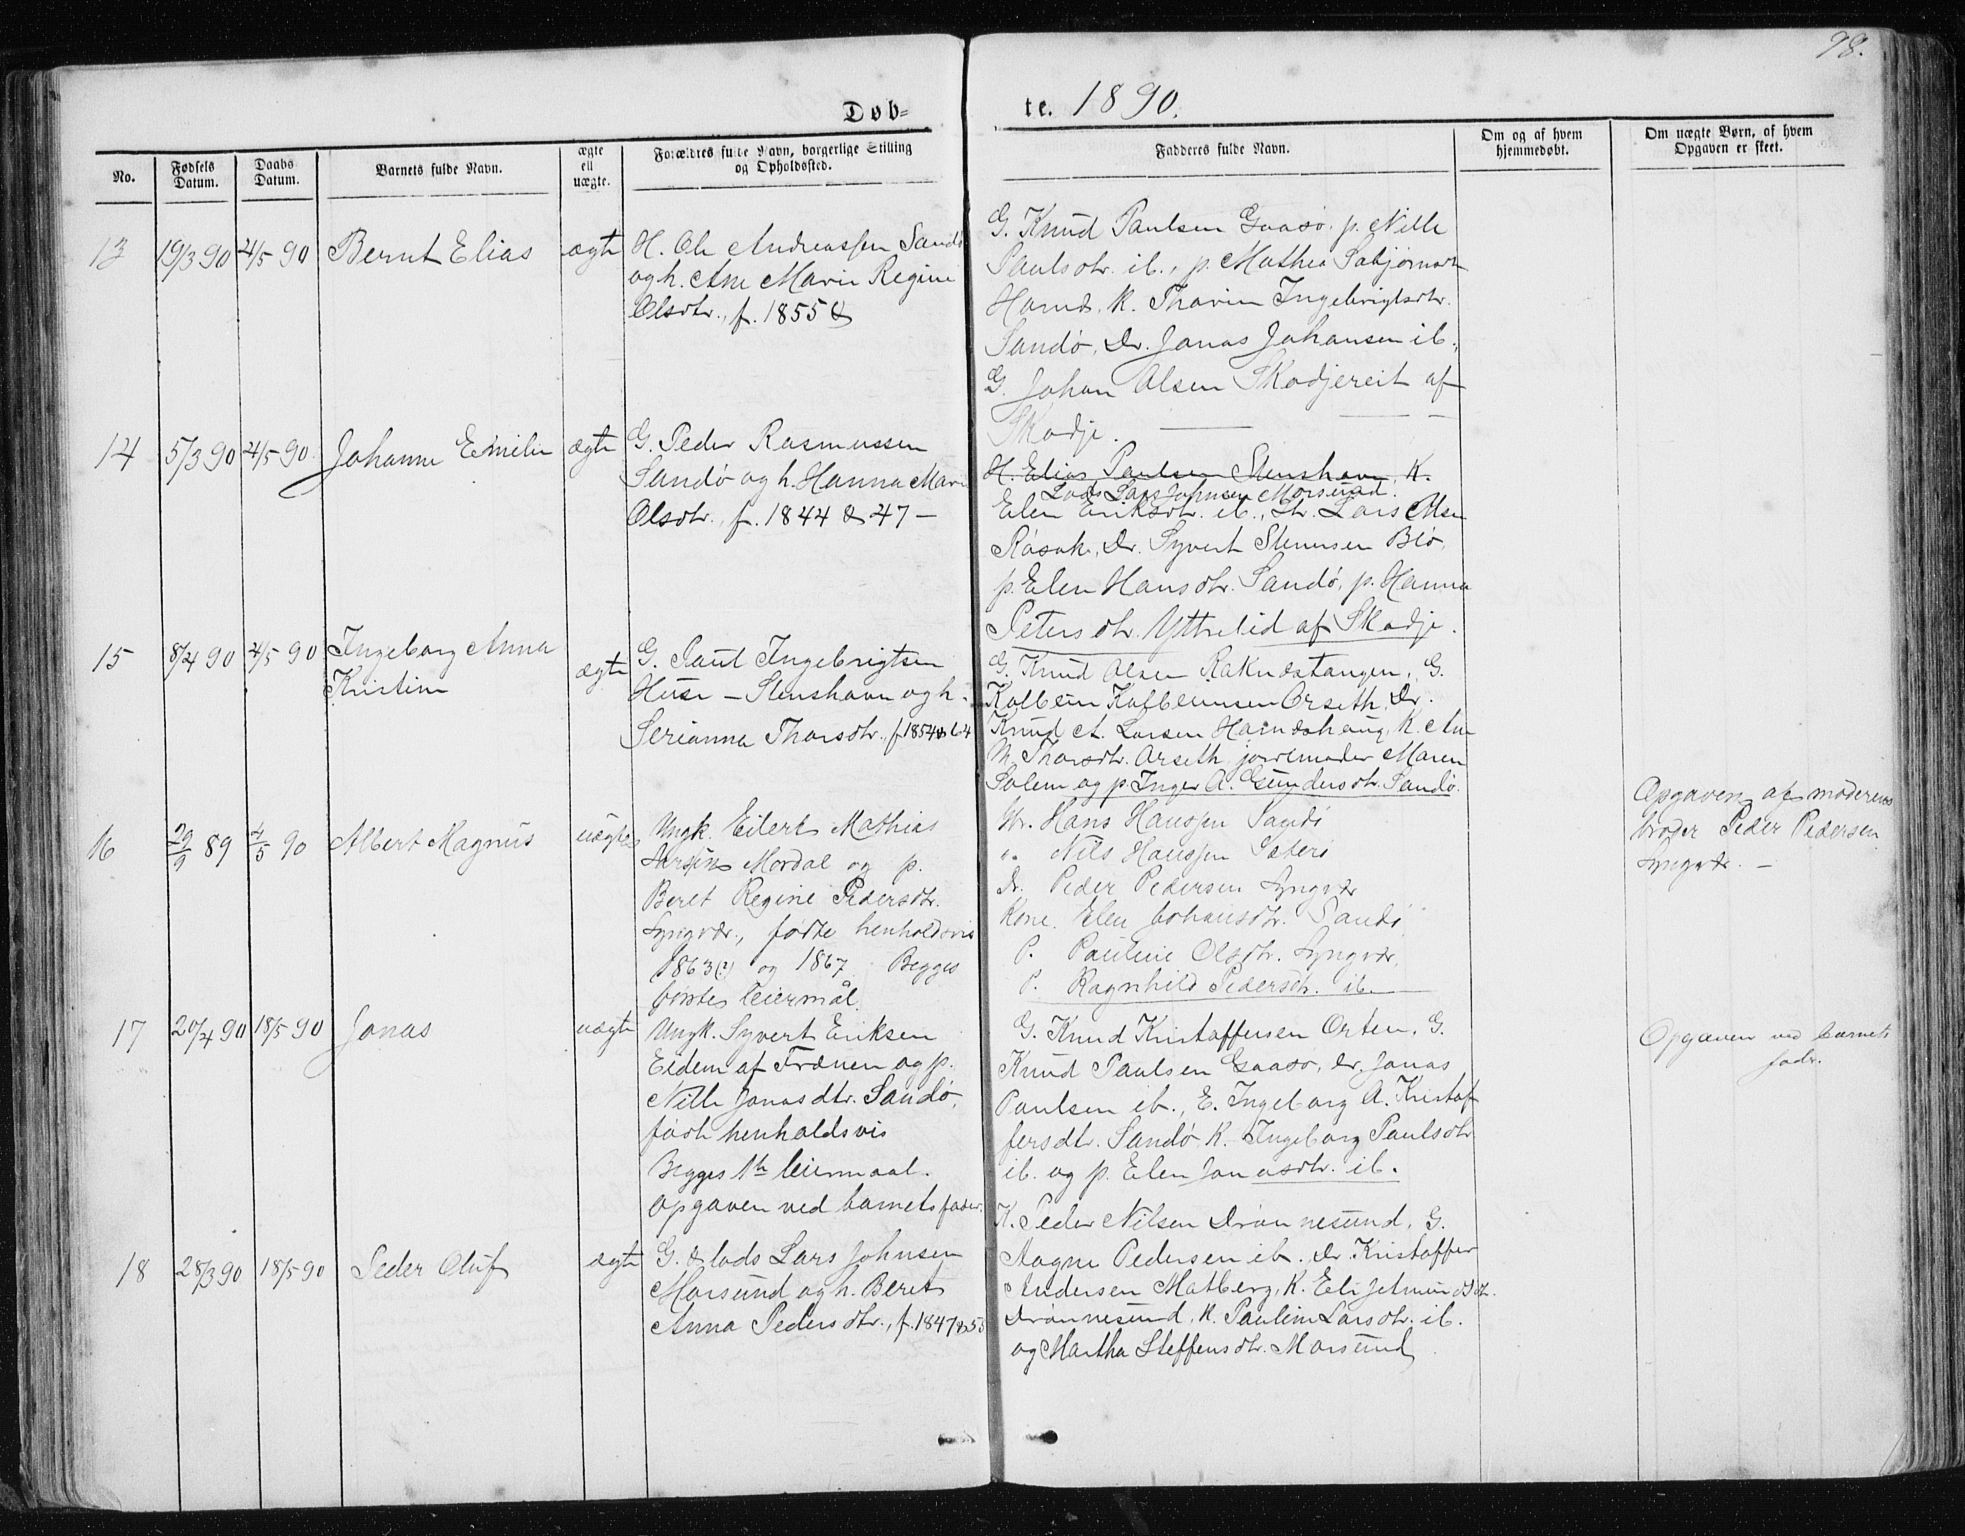 98.
Døb=
te. 1890.
No.
Fødsels Datum.
Daabs Datum.
Barnets fulde Navn.
ægte ell uægte.
Forældres fulde Navn, borgerlige Stilling og Opholdssted.
Fadderes fulde Navn.
Om og af hvem hjemmedøbt.
Om uægte Børn, af hvem Opgaven er skeet.
13
19/3 90
4/5 90
Bernt Elias
ægte
H. Ole Andreassen Sandø
og h. Ane Marie Regine
Olsdtr., f. 1855 &
G. Knud Paulsen Gaasø. p. Nille
Paulsdtr. ib., p.
Harnæs. K. Thorine Ingebrigtsdtr.
Sandø, Dr. Jonas Johansen ib.,
G. Johan Olsen Skodjereit af
Skodje.
14
5/3 90
4/5 90
Johanne Emilie
ægte
G. Peder Rasmussen
Sandø og h. Hanna Marie
Olsdtr., f. 1844 & 47 -
H. Elias Paulsen Stenshavn, K.
Lods Lars Johnsen Morsund.
Elen Eriksdtr. ib., Lars Olsen
Røsok, Dr. Syvert Stenersen Biø,
p. Elen Hansdtr. Sandø, p. Hanna
Petersdtr. Yttrelid af Skodje.
15
8/4 90
4/5 90
Ingeborg Anna
Kristine
ægte
G. Paul Ingebrigtsen
Huse - Stenshavn og h.
Serianna Thorsdtr., f. 1854 & 64
G. Knud Olsen Rakndstangen, G.
Kolbein Kolbeinsen Orseth, Dr.
Knud A. Larsen Harnæshaug, K. Ane
M. Thorsdtr. Orseth, jordemoder Maren
Solem og p. Inger A. Gundersdtr. Sandø.
16
29/9 89
4/5 90
Albert Magnus
uægte
Ungk. Eilert Mathias
Larsen Mordal og p.
Beret Regine Pedersdtr.
Lyngvær., fødte henholdsvis
1863(?) og 1867. Begges
første leiermål.
Hans Hanssen Sandø
" Nils Hanssen Sæterø
Dr. Peder Pedersen Lyngvær
Kone. Elen Johansdtr. Sandø
P. Pauline Olsdtr. Lyngvær,
P. Ragnhild Pedersdtr. ib.
Opgaven af moderens
broder Peder Pedersen
Lyngvær. -
17
20/4 90
18/5 90
Jonas
uægte
Ungk. Syvert Eriksen
Eidem af Frænen og p.
Nille Jonasdtr. Sandø,
født henholdsvis
Begges 1ste leiermaal.
Opgaven ved barnets fader.
G. Knud Kristoffersen Orten, G.
Knud Paulsen Gaasø, Dr. Jonas
Paulsen ib., E. Ingeborg A. Kristof
fersdtr. Sandø K. Ingeborg Paulsdtr
ib. og p. Elen Jonasdtr. ib.
Opgaven ved barnets
fadr.
18
28/3 90
18/5 90
Peder Oluf
ægte
G. & lods Lars Johnsen
Morsund og h. Beret
Anna Pedersdtr., f. 1847 & 53
K. Peder Nilsen Drønnesund, G.
Aagne Pedersen ib. Dr Kristoffer
Andersen Matberg, K. Eli Jetmundsdtr.
Drønnesund, K. Pauline Larsdtr. ib.
og Martha Steffensdtr. Morsund